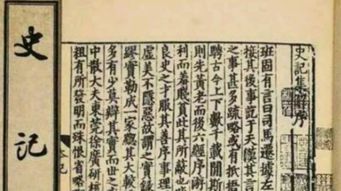 史記集解序
班固有言曰司馬遷據左
接其後事訖于天漢其言
之事甚多疏略或有抵捂
騁古今上下數千載閒斯
則先黃老而後六經序游
利而羞賤貧此其所蔽也
良史之才服其善序事理
虛美不隱惡故謂之實錄
繆實勒成一家總其大較
多有少莫辯其實而世之
中散大夫東莞徐廣研核
粗有所發明而殊恨省略
史記